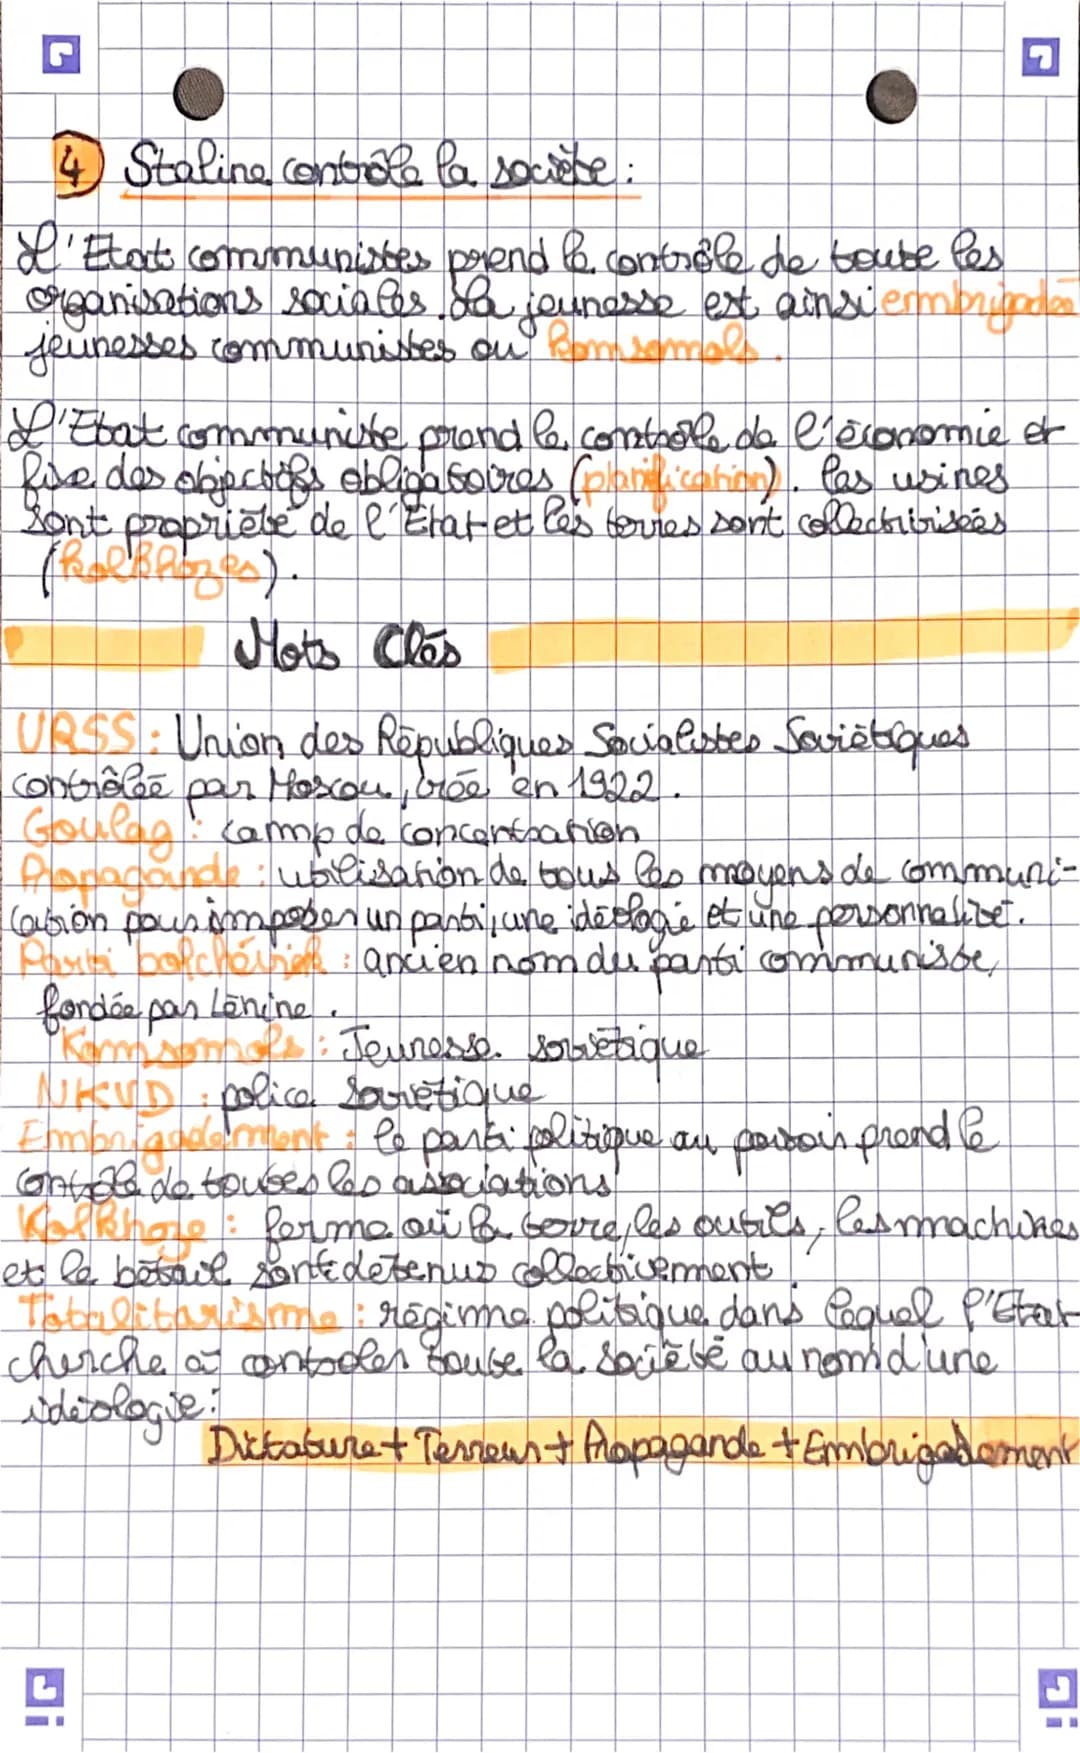 4 Staline contrôle la sociète :
L'Etat communistes prend le contrôle de toute les
organisations sociales. La jeunesse est ainsi embrigadée
jeunesses communistes ou Komsomols.
L'Etat communiste prend le contrôle de l'économie et
fixe des objectifs obligatoires (planification). les usines
sont propriété de l'Etat et les terres sont collectivisées
(kolkhozes).
Mots Clés
URSS : Union des Républiques Socialistes Soviétiques
contrôlée par Moscou, crée en 1922.
Goulag : camp de concentration
Propagande : utilisation de tous les moyens de communi-
cation pour imposer un parti, une idéologie et une personnalité.
Parti bolchévick : ancien nom du parti communiste,
fondée par Lénine.
Komsomols : Jeunesse soviétique
NKVD : police soviétique
Embrigadement : le parti politique au pouvoir prend le
contrôle de toutes les associations
Kolkhoze : ferme où la terre, les outils, les machines
et le bétail sont détenus collectivement
Totalitarisme : régime politique dans lequel l'Etat
cherche à controler toute la société au nom d'une
idéologie :
Dictature + Terreur + Propagande + Embrigadement